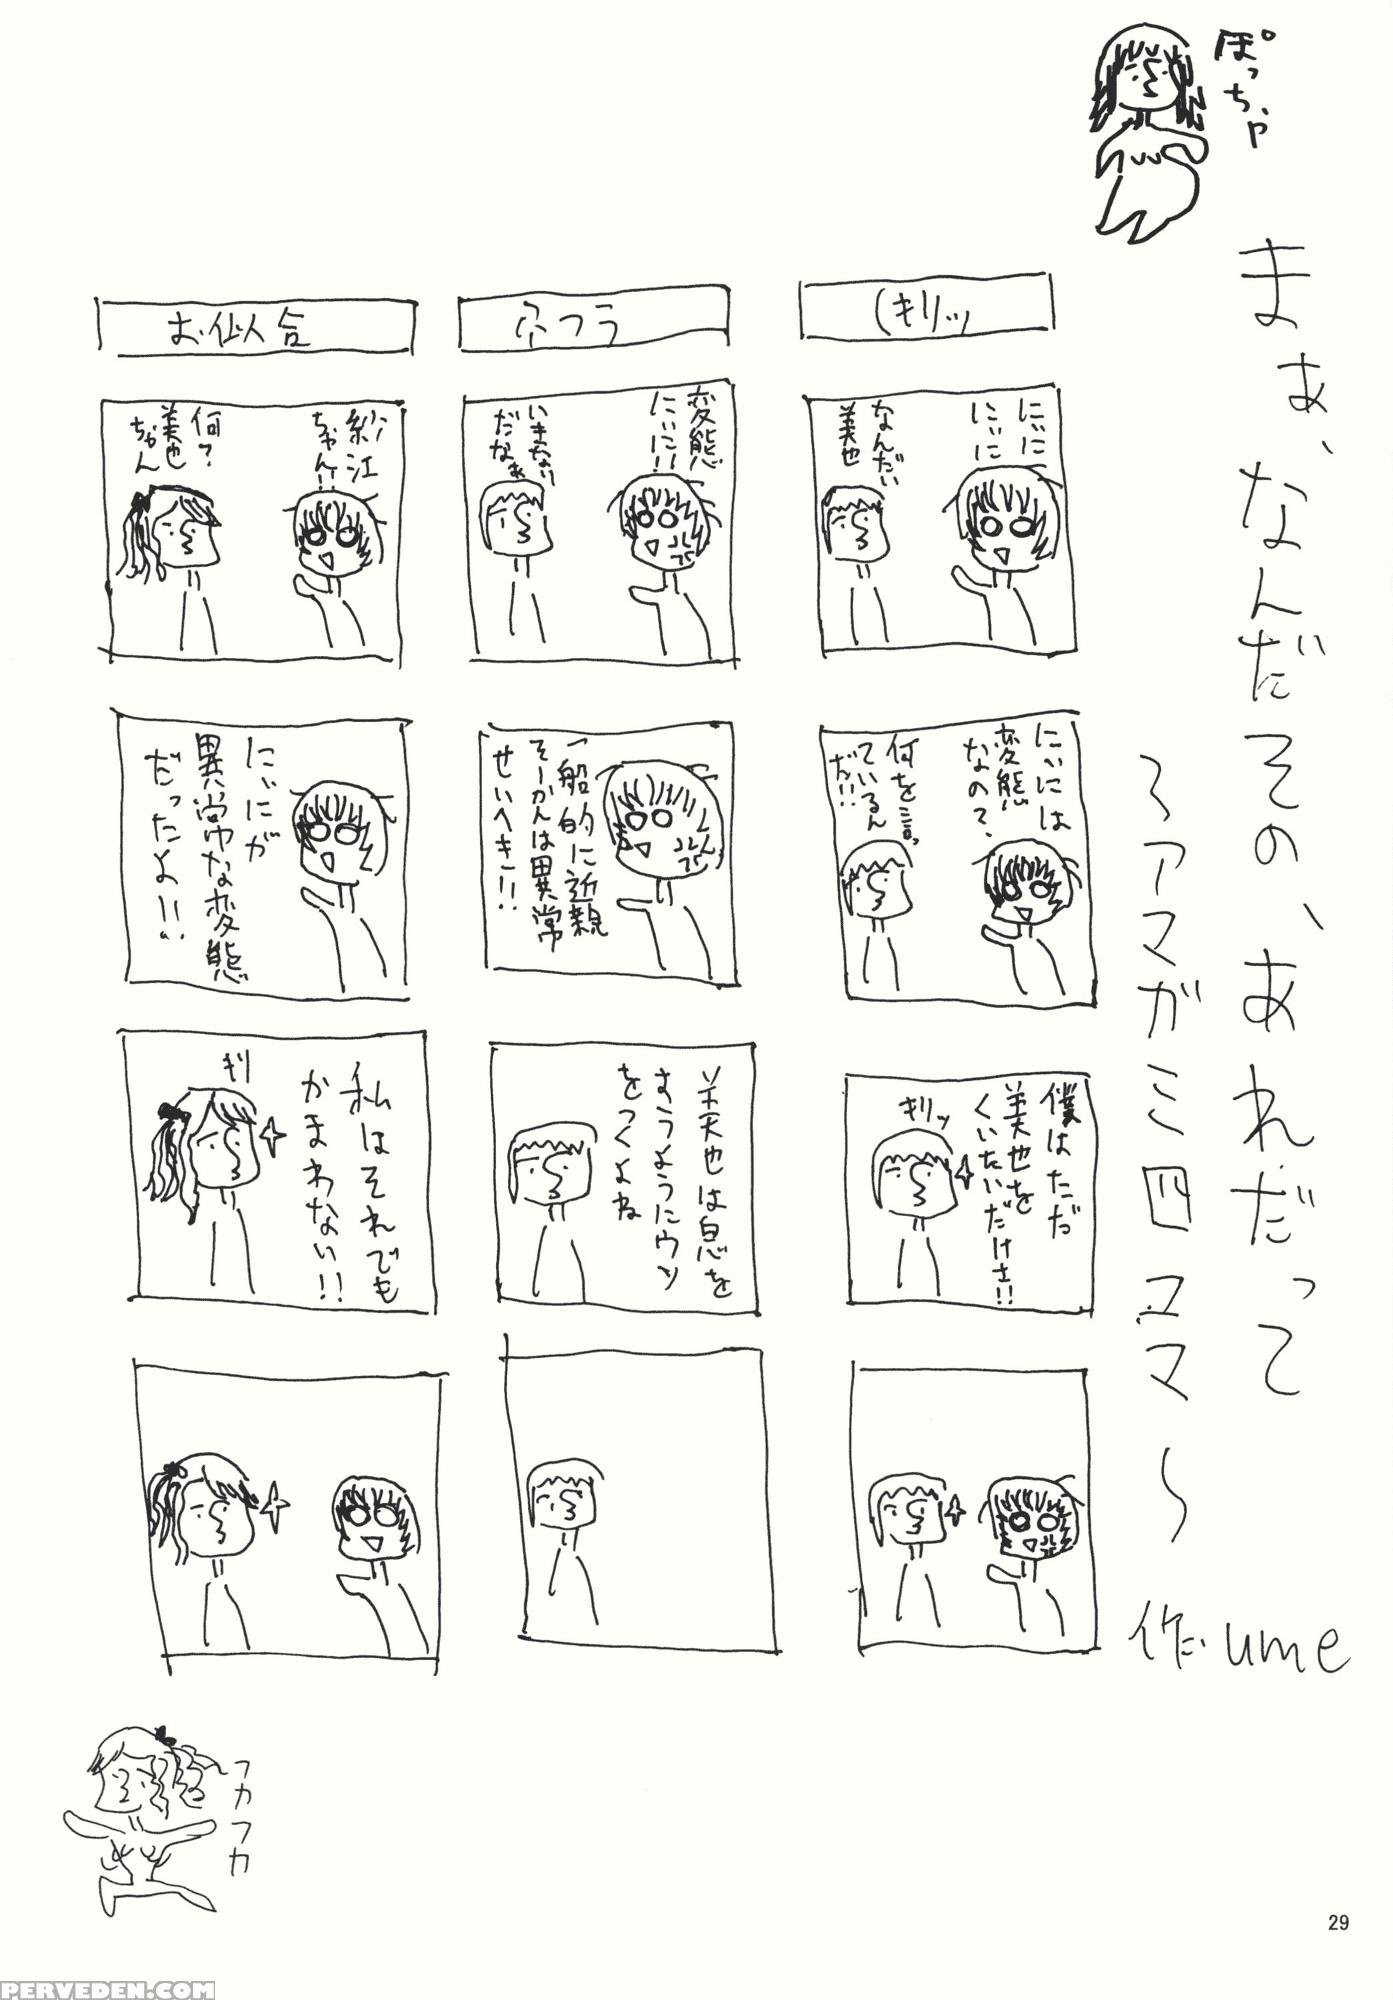 ぽっちゃ
まぁ、なんだその、あれだって
～アマガミ四コマ～
作:ume
(キリッ
にぃに
にぃに
なんだい
美也
にぃには
変態
なの?
何を言っ
ているん
だ!!
僕はただ
美也を
くいたいだけさ!!
キリッ
変態
にぃに!!
いきなり
だなぁ
一船的に近親
そーかんは異常
せいへき!!
美也は息を
すうようにウソ
をつくよね
お似合
紗江
ちゃん!!
何?
美也
ちゃん
にぃにが
異常な変態
だったよ!!
私はそれでも
かまわない!!
キリ
フカフカ
29
PERVEDEN.COM